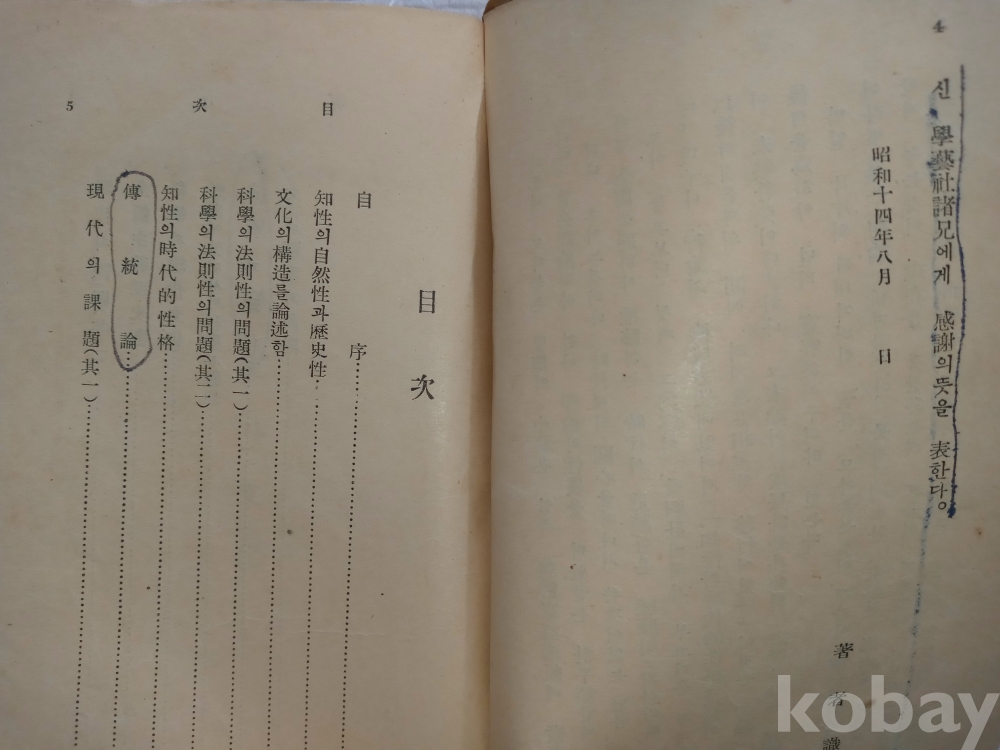 4
신 學藝社諸兄에게 感謝의뜻을 表한다。
昭和十四年八月 日
著者識
目次
自序
知性의自然性과歷史性
文化의構造를論述함
科學의法則性의問題(其一)
科學의法則性의問題(其二)
知性의時代的性格
傳統論
現代의課題(其一)
目次 5
kobay